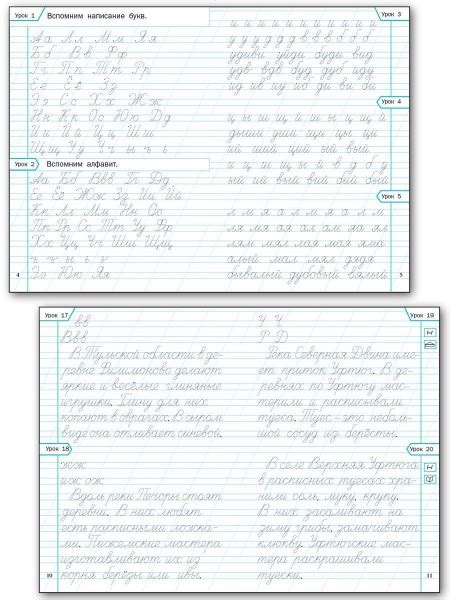 Урок 1
Вспомним написание букв.
Аа Лл Мм Яя
Бб Вв Фф
Гг Пп Тт Рр
Ее Ёё Зз
Ээ Сс Хх Жж
Нн Кк Оо Юю Дд
Ии Йй Цц Шш
Щщ Уу Чч ы ь ъ
Урок 2
Вспомним алфавит.
Аа Бб Ввв Гг Дд
Ее Ёё Жж Зз Ии Йй
Кк Лл Мм Нн Оо
Пп Рр Сс Тт Уу Фф
Хх Цц Чч Шш Щщ
ъ ы ь
Ээ Юю Яя
4
Урок 3
удиви уйди буди вид
удв вдв буд дуб иду
ид ив иу иб ди ви би
Урок 4
ц ы ш щ й ш ы щ ц й
дыши уши
Урок 5
л м я а л м я а л м
ля мя ая ал ам яа ял
лям мял лая мая яма
алый мал мял дядя
бывалый дубовый вялый
5
Урок 17
вв
Ввв
В Тульской области в де-
ревне Филимоново делают
яркие и весёлые глиняные
игрушки. Глину для них
копают в оврагах. В сыром
виде она отливает синевой.
Урок 18
жж
иж ож
Вдоль реки Печоры стоят
деревни. В них любят
есть расписными ложка-
ми. Пижемские мастера
изготавливают их из
корня берёзы или ивы.
10
Урок 19
У Ч
Р Д
Река Северная Двина име-
ет приток Уфтюг. В де-
ревнях по Уфтюгу мас-
терили и расписывали
туеса. Туес – это неболь-
шой сосуд из берёсты.
Урок 20
В селе Верхняя Уфтюга
в расписных туесах хра-
нили соль, муку, крупу.
В них засаливают на
зиму грибы, замачивают
клюкву. Уфтюгские мас-
тера раскрашивали
туески.
11